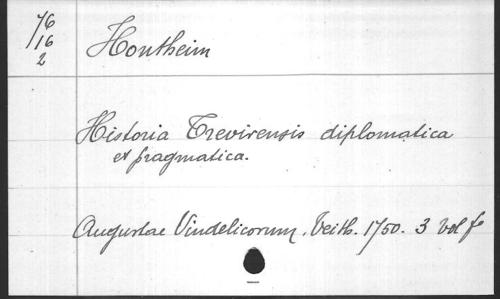 76
16
2
Hontheim
Historia Trevirensis diplomatica
et pragmatica.
Augustae Vindelicorum, Veith. 1750. 3 vol f